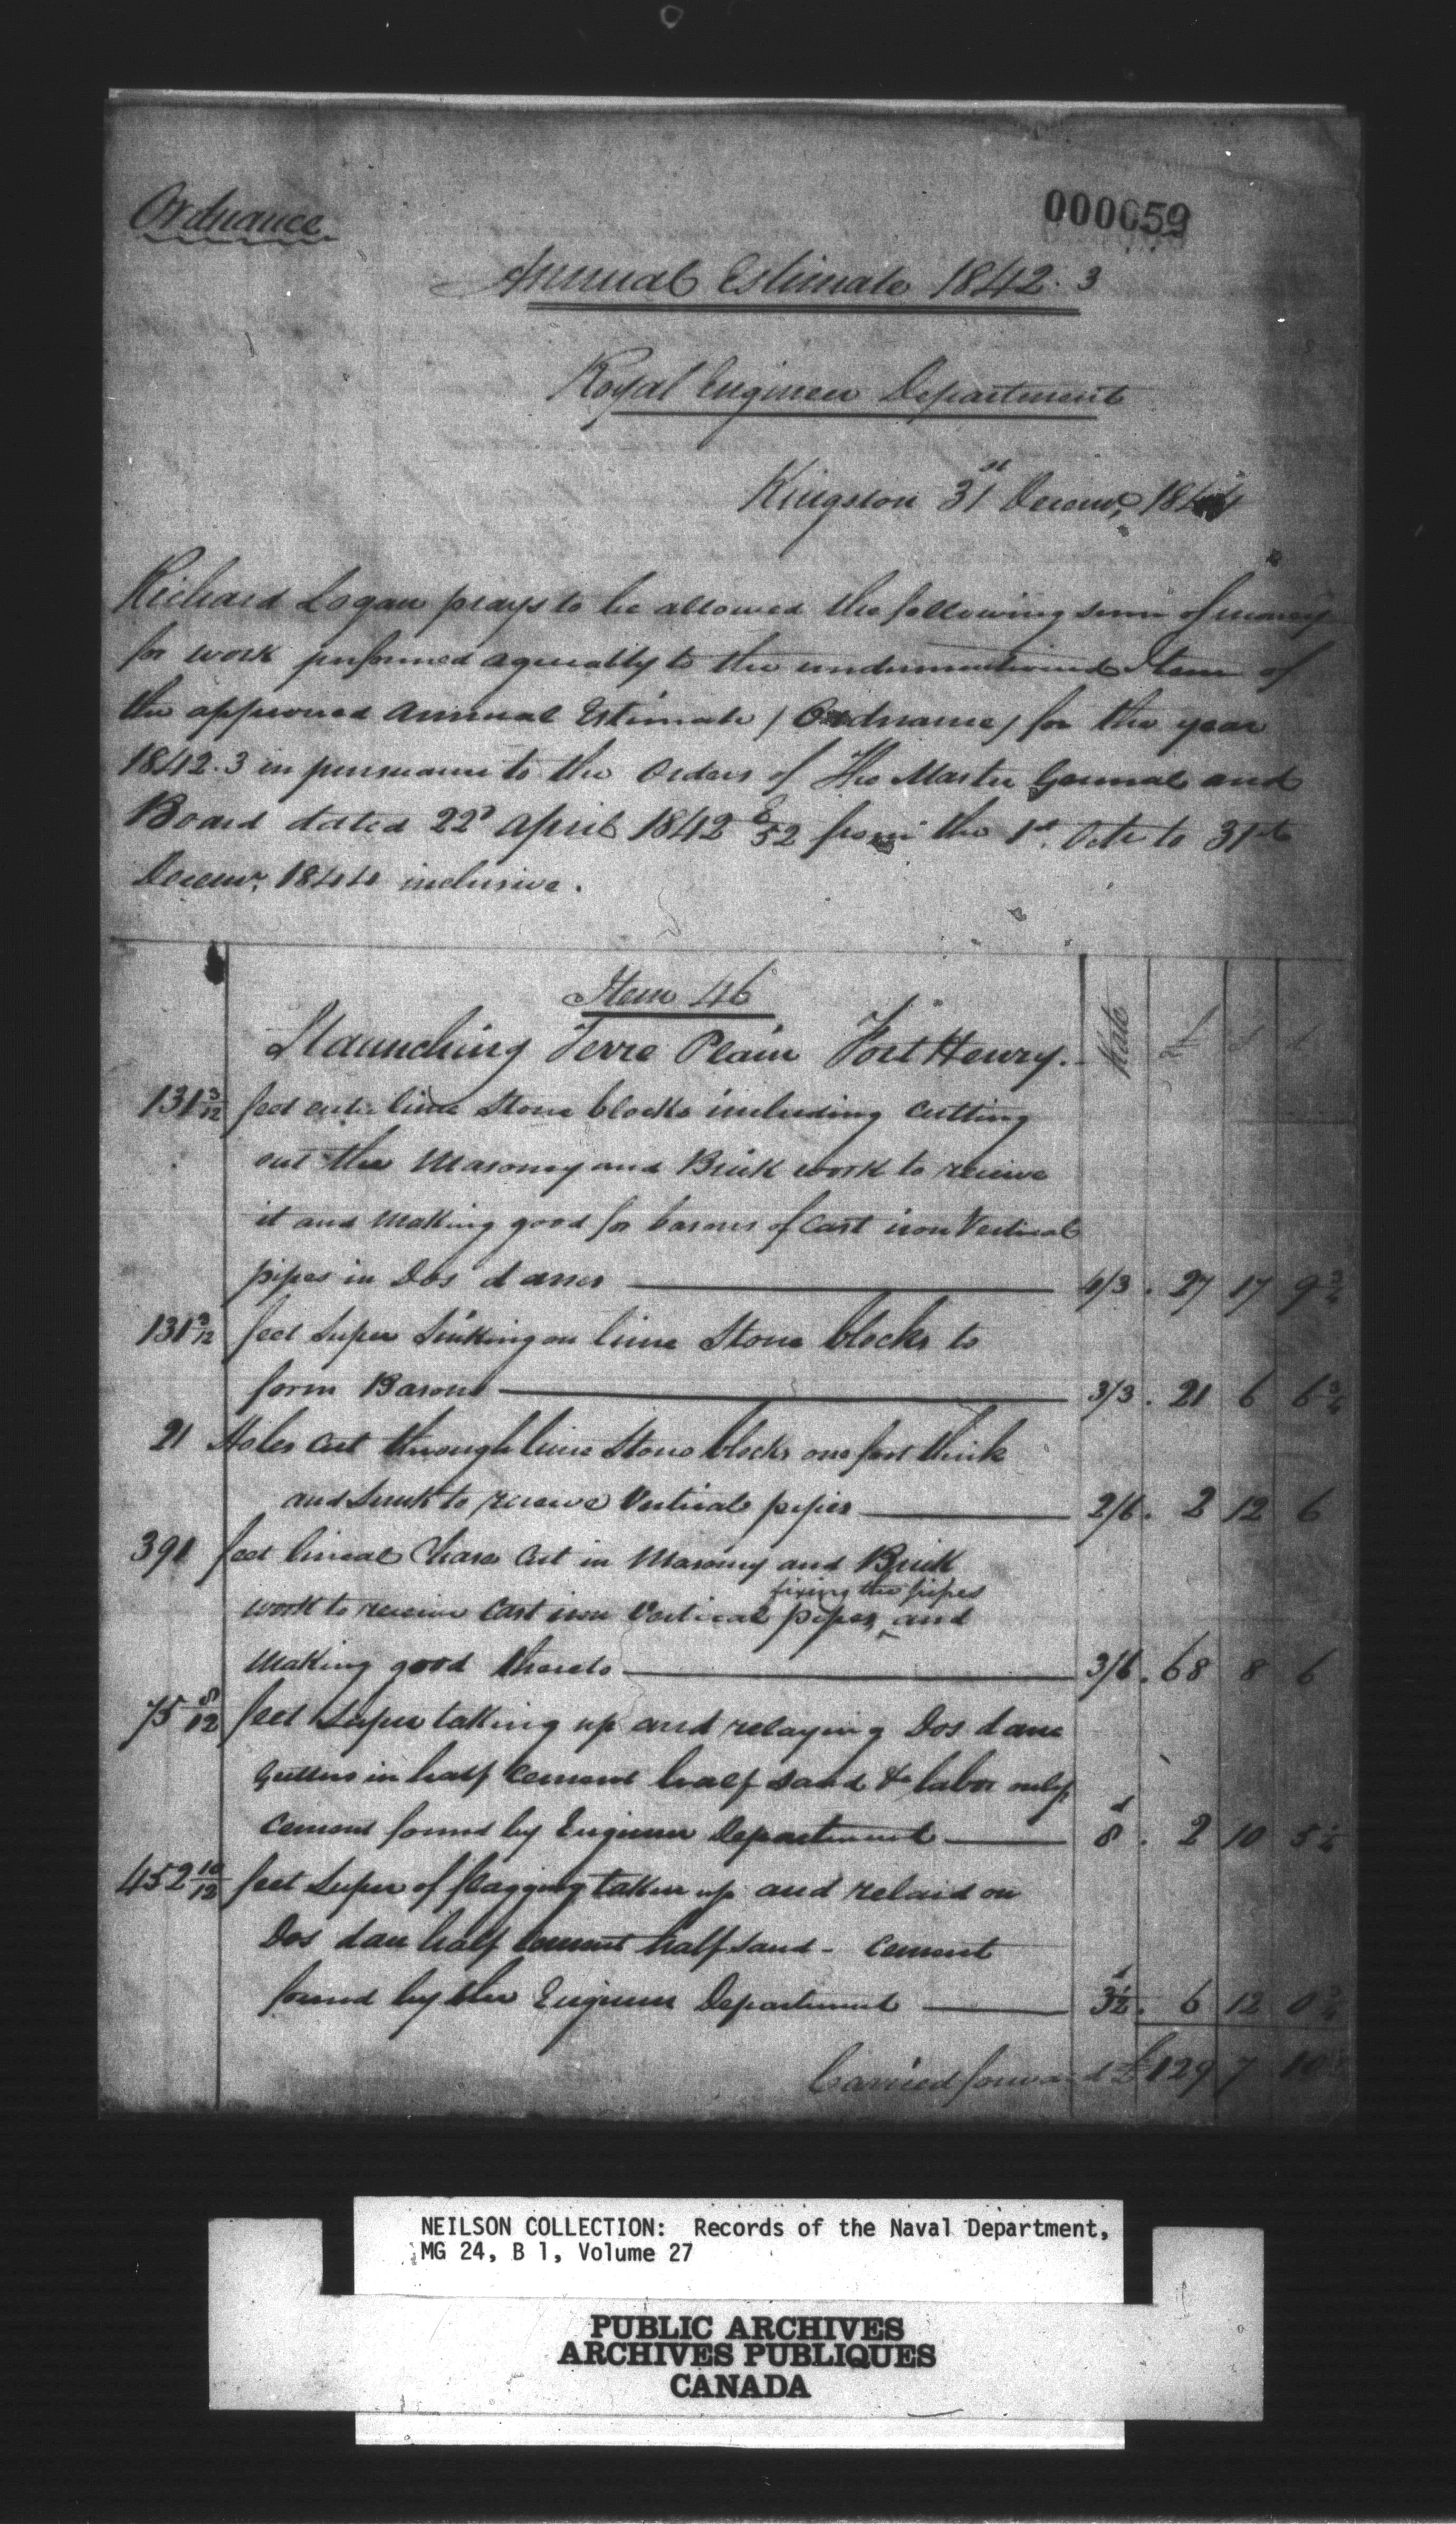 000059
Ordnance
Annual Estimate 1842.3
Royal Engineer Department
Kingston 31st Decemr. 1844
Richard Logan prays to be allowed the following sum of money
for work performed agreeably to the undermentioned Item of
the approved Annual Estimate / Ordnance / for the year
1842.3 in pursuance to the Orders of The Master General and
Board dated 22d April 1842 E/52 from the 1st. Octr to 31st
Decemr. 1844 inclusive.
Item 46
Rate £ s d
Staunching Terre Plain Fort Henry.
131 3/12 feet cube lime Stone blocks including cutting
out the Masonry and Brick work to receive
it and Making good for basons of Cast iron Vertical
pipes in Dos d'anes 4/3 . 27 17 9 3/4
131 3/12 feet super Sinking on lime Stone blocks to
form Basons 3/3 . 21 6 6 3/4
21 Holes cut through lime Stone blocks one foot thick
and sunk to receive Vertical pipes 2/6 . 2 12 6
391 feet lineal Chase Cut in Masonry and Brick
work to receive Cast iron Vertical pipes, fixing the pipes and
Making good thereto 3/6 . 68 8 6
75 8/12 feet super taking up and relaying Dos d'ane
Gutters in half Cement half sand &c labor only
Cement found by Engineer Department 8d . 2 10 5 1/4
452 10/12 feet super of flagging taken up and relaid on
Dos d'ane half Cement half sand - Cement
found by the Engineer Department 3 1/2d . 6 12 0 3/4
Carried forward £ 129 7 10
NEILSON COLLECTION: Records of the Naval Department,
MG 24, B 1, Volume 27
PUBLIC ARCHIVES
ARCHIVES PUBLIQUES
CANADA